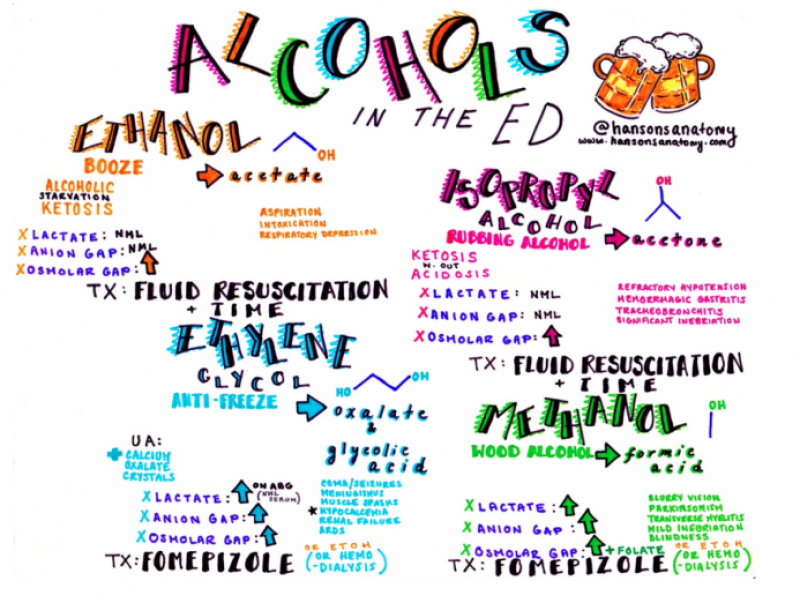 ALCOHOLS
IN THE ED
@hansonsanatomy
www.hansonsanatomy.com
ETHANOL
OH
BOOZE
acetate
ALCOHOLIC
STARVATION
KETOSIS
ASPIRATION
INTOXICATION
RESPIRATORY DEPRESSION
X LACTATE: NML
X ANION GAP: NML
X OSMOLAR GAP:
TX: FLUID RESUSCITATION
+ TIME
ISOPROPYL
ALCOHOL
OH
RUBBING ALCOHOL
acetone
KETOSIS
W.OUT
ACIDOSIS
X LACTATE: NML
X ANION GAP: NML
X OSMOLAR GAP:
REFRACTORY HYPOTENSION
HEMORRHAGIC GASTRITIS
TRACHEOBRONCHITIS
SIGNIFICANT INEBRIATION
TX: FLUID RESUSCITATION
+ TIME
ETHYLENE
GLYCOL
HO OH
ANTI-FREEZE
oxalate
&
glycolic
acid
UA:
+ CALCIUM
OXALATE
CRYSTALS
X LACTATE: ON ABG
(NML SERUM)
X ANION GAP:
X OSMOLAR GAP:
COMA/SEIZURES
MENINGISMUS
MUSCLE SPASMS
* HYPOCALCEMIA
RENAL FAILURE
ARDS
TX: FOMEPIZOLE
OR ETOH
(OR HEMO
-DIALYSIS)
METHANOL
OH
WOOD ALCOHOL
formic
acid
X LACTATE:
X ANION GAP:
X OSMOLAR GAP: + FOLATE
BLURRY VISION
PARKINSONISM
TRANSVERSE MYELITIS
MILD INEBRIATION
BLINDNESS
TX: FOMEPIZOLE
OR ETOH
(OR HEMO
-DIALYSIS)